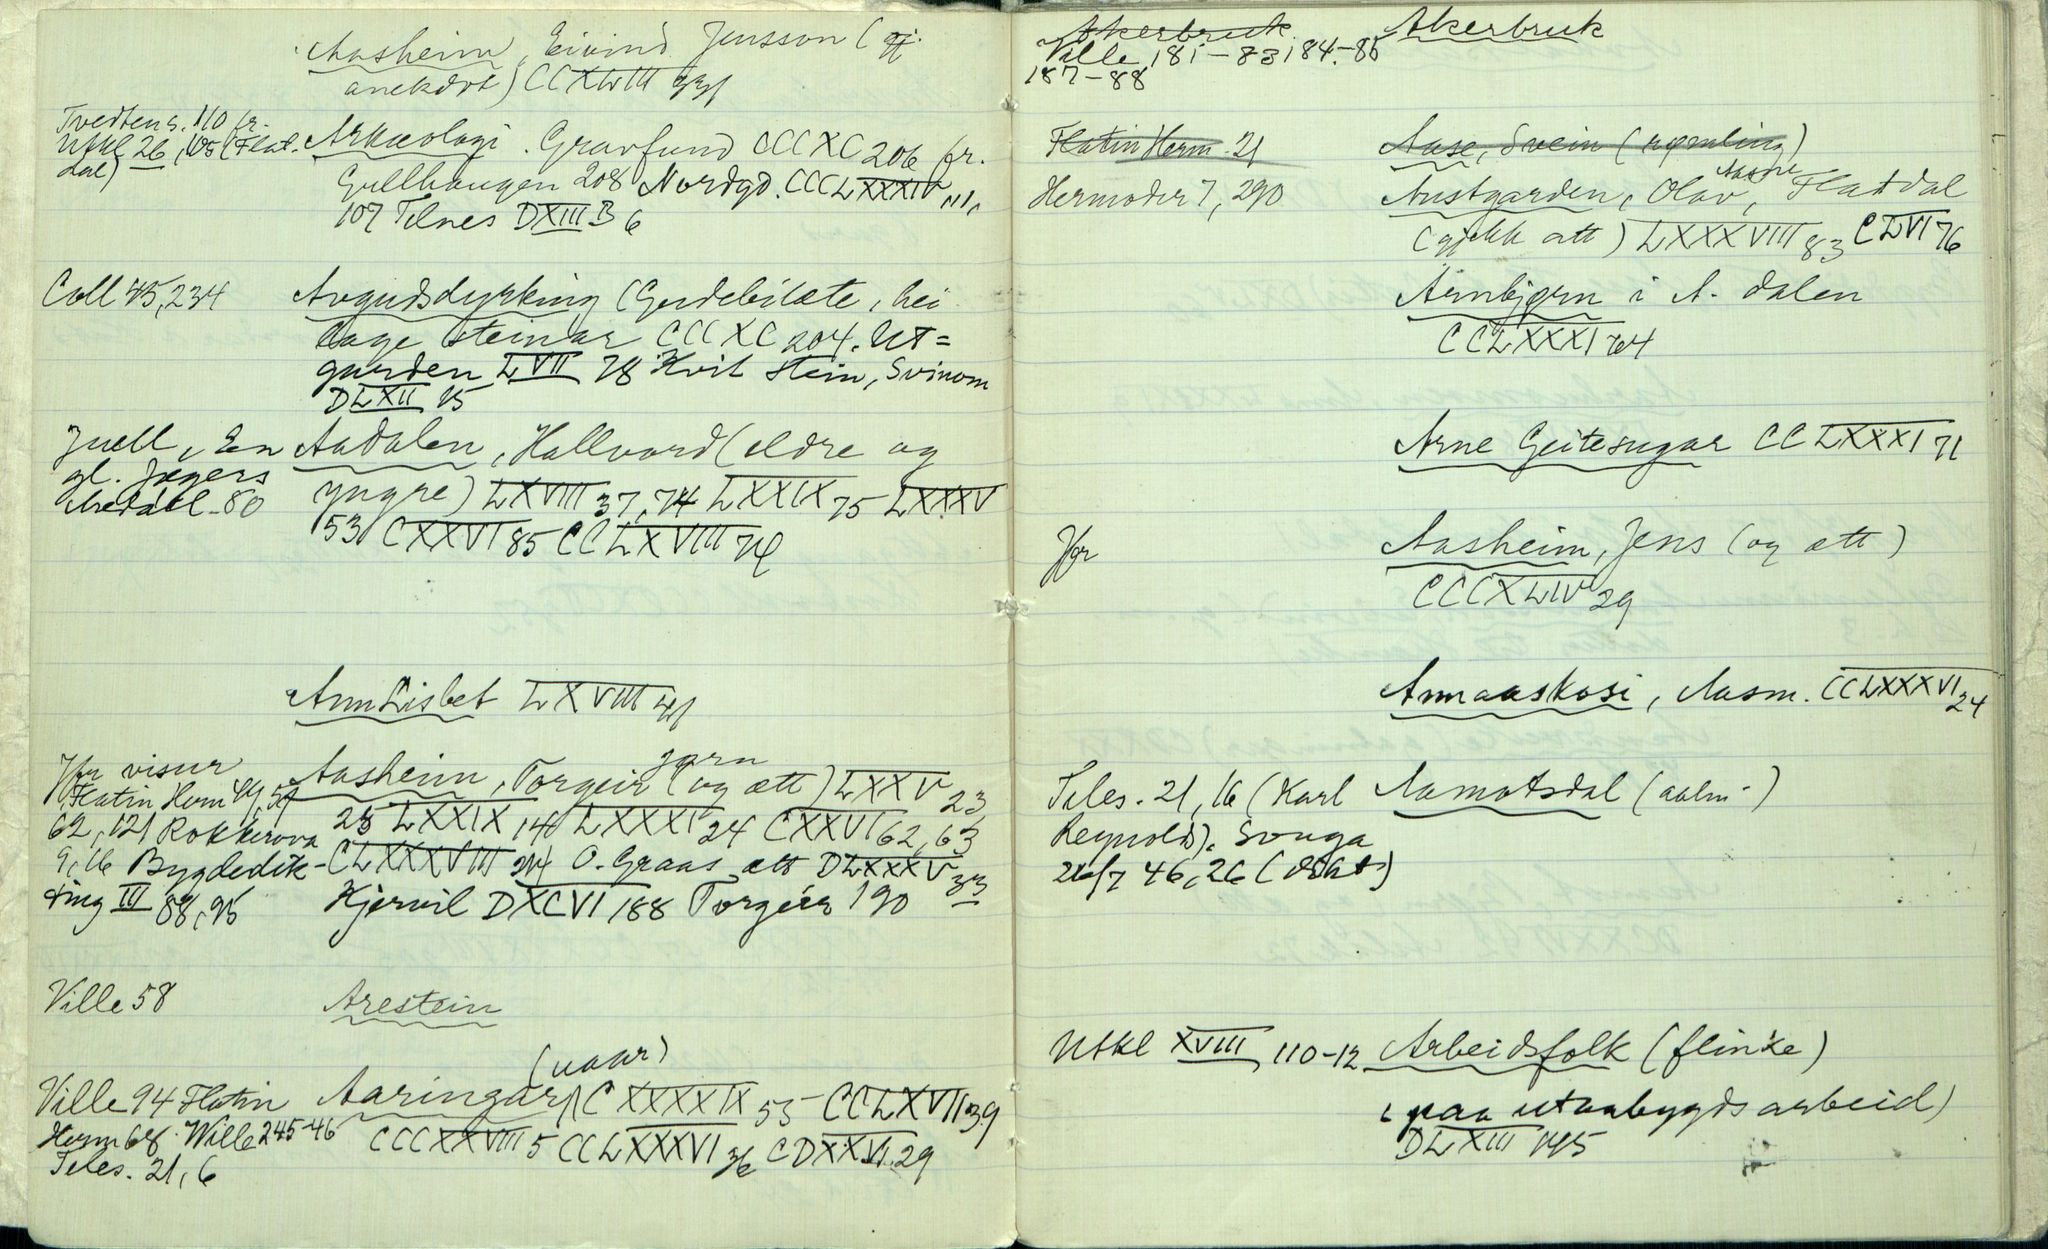 Aasheim, Eivind Jensson (og
anekdot) CCXLVIII
Tvedten s. 110 fr.
Utkl 26, 105 (Flat-
dal)
Arkæologi. Gravfund CCCXC 206 fr.
Gullhaugen 208 Nordgd. CCCLXXXIV
107 Telnes DXIII B 6
Coll 45, 234
Avgudsdyrking (Gudebilæte, hei
lage steinar CCCXC 204. Ut=
garden LVII 78 Kvit stein, Svinom
DLXII 15
Juell, En
gl. Jægers
80
Aadalen, Hallvard (eldre og
yngre) LXVIII 37, 74 LXXIX 75 LXXXV
53 CXXVI 85 CCLXVIII 74
Ann Lisbet LXVIII 41
Jfr visur
Flatin Herm 49, 54
62, 121 Rokkerova
9, 16 Bygdedik-
ting III 88, 95
Aasheim, Torgeir Jørn (og ætt) LXXV 23,
28 LXXIX 14 LXXXI 24 CXXVI 62, 63
CLXXXVIII 214 O. Graas ætt DLXXXV 33
Kjervil DXCVI 188 Torgeir 190
Ville 58
Arestein
(uaar)
Ville 94 Flatin
Herm 68. Wille 245-46
Teles. 21, 6
Aaringar CXXXXIX 55 CCLXVII 39
CCCXXVIII 5 CCLXXXVI 36 CDXXVI 29
Akerbruk
Ville 181-83 184-85
187-88
Akerbruk
Flatin Herm. 21
Aase, Svein (rømling)
Hermoder 7, 290
Austgarden, Olav Aasne, Flatdal
(gjekk att) LXXXVIII 83 CLVI 76
Arnbjørn i A. dalen
CCLXXXI 64
Arne Geitesugar CCLXXXI 71
Jfr
Aasheim, Jens (og ætt)
CCCXLIV 29
Annaaskosi, Aasm. CCLXXXVI 24
Teles. 21, 16 (Karl
Reynolds). Souga
26/7 46, 26
Aamotsdal (aalm.)
Utkl XVIII 110-12
Arbeidsfolk (flinke)
(paa utanbygds arbeid)
DLXIII 145